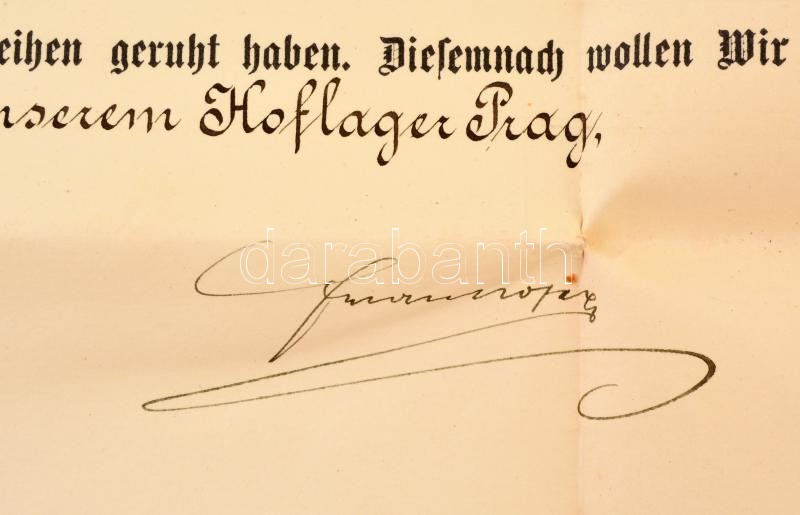 eihen geruht haben. Diesemnach wollen Wir
nserem Hoflager Prag,
darabanth